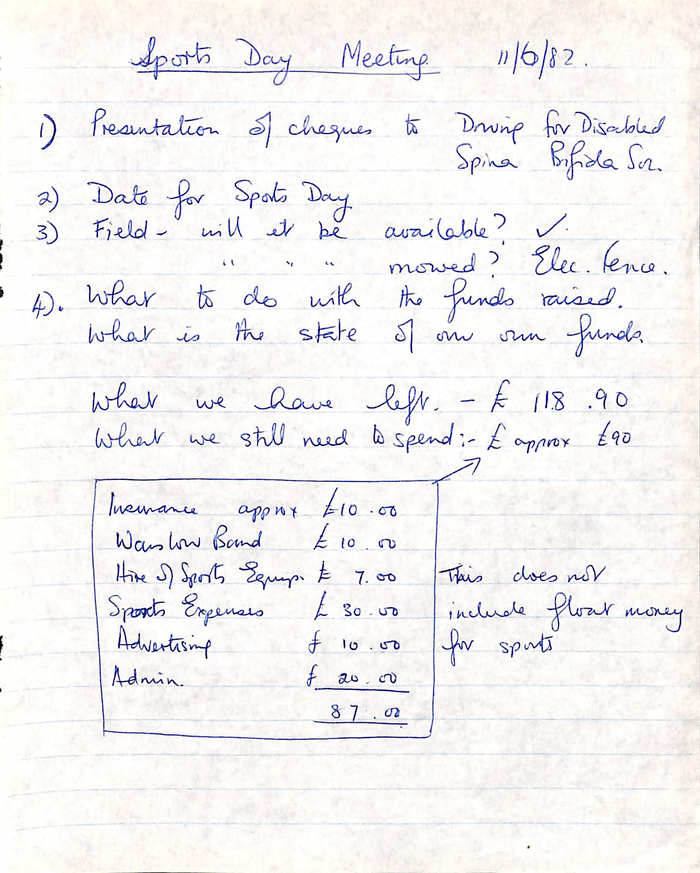 Sports Day Meeting 11/6/82.
1) Presentation of cheques to Driving for Disabled
Spina Bifida Soc.
2) Date for Sports Day
3) Field - will it be available? ✓.
" " " mowed? Elec. fence.
4). What to do with the funds raised.
What is the state of our own funds.
What we have left. - £ 118.90
What we still need to spend:- £ approx £90
Insurance approx £10.00
Wanslow Band £ 10.00
Hire of Sports Equip. £ 7.00
Sports Expenses £ 30.00
Advertising £ 10.00
Admin. £ 20.00
87.00
This does not
include float money
for sports